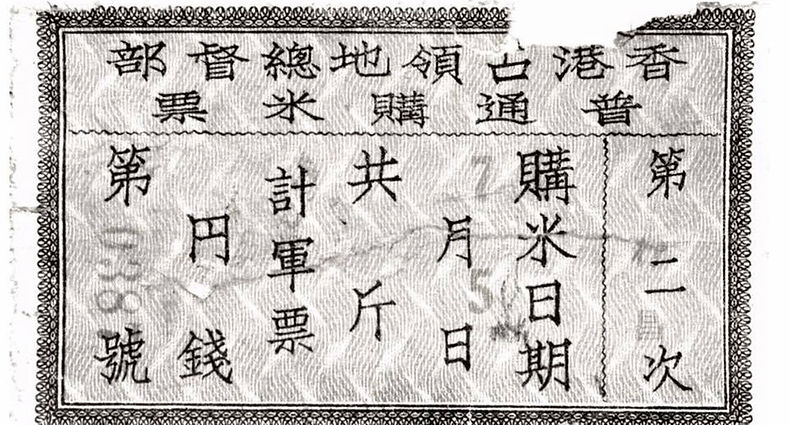 香港占領地總督部
普通購米票
第二次
購米日期
7月5日
共 斤
計軍票
円 錢
第 038 號